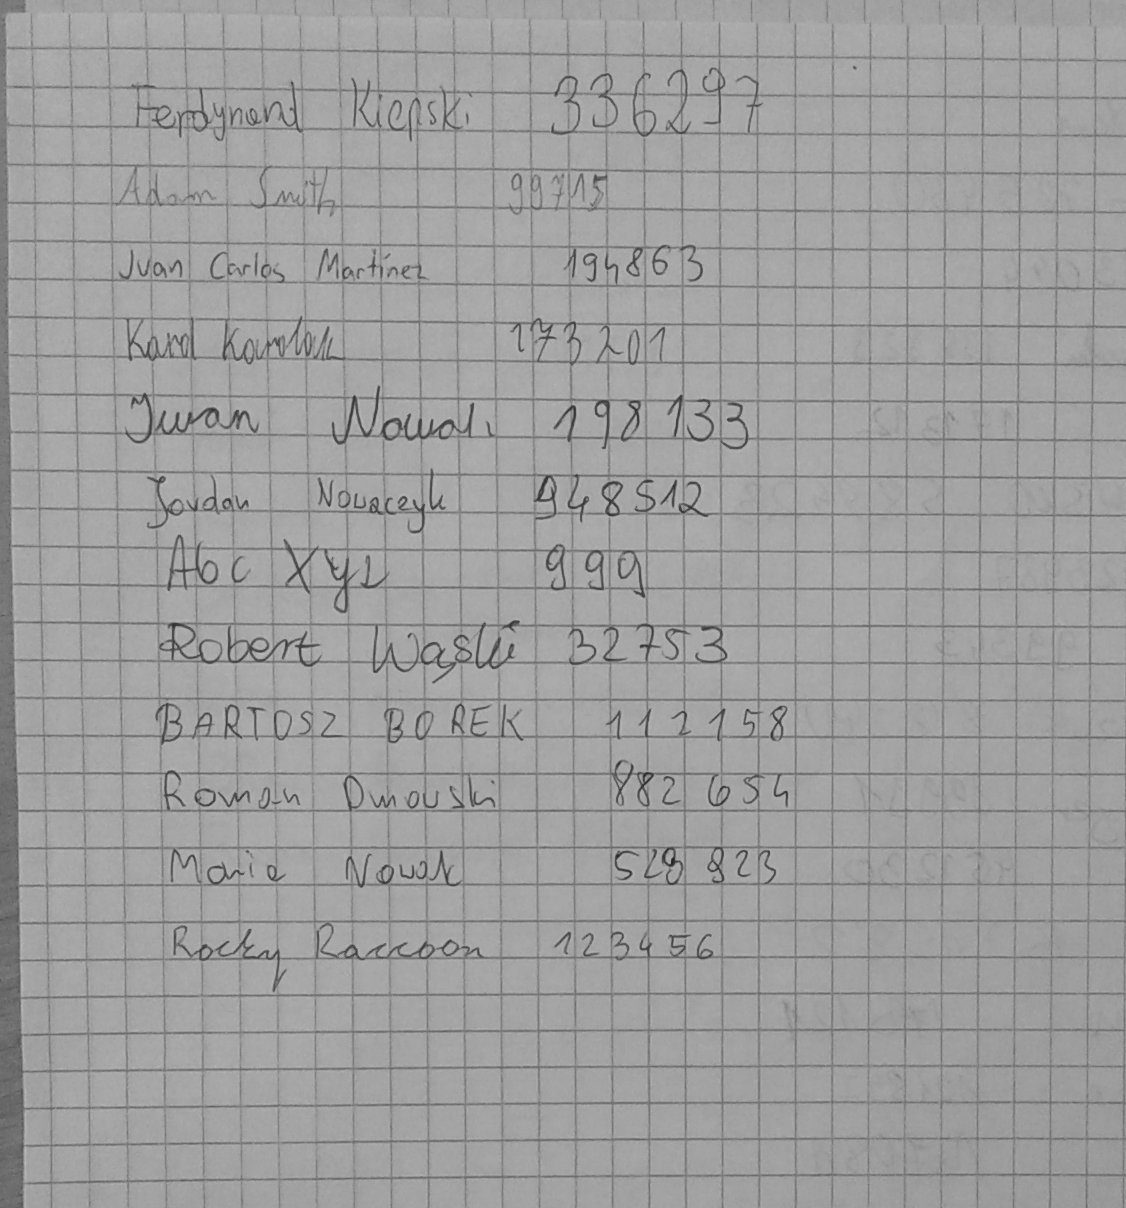 Ferdynand Kiepski 336297
Adam Smith 99715
Juan Carlos Martinez 194863
Karol Karolak 173201
Iwan Nowak 198133
Jordan Nowaczyk 948512
Abc Xyz 999
Robert Wąski 32753
BARTOSZ BOREK 112158
Roman Dmowski 882654
Maria Nowak 529823
Rocky Raccoon 123456